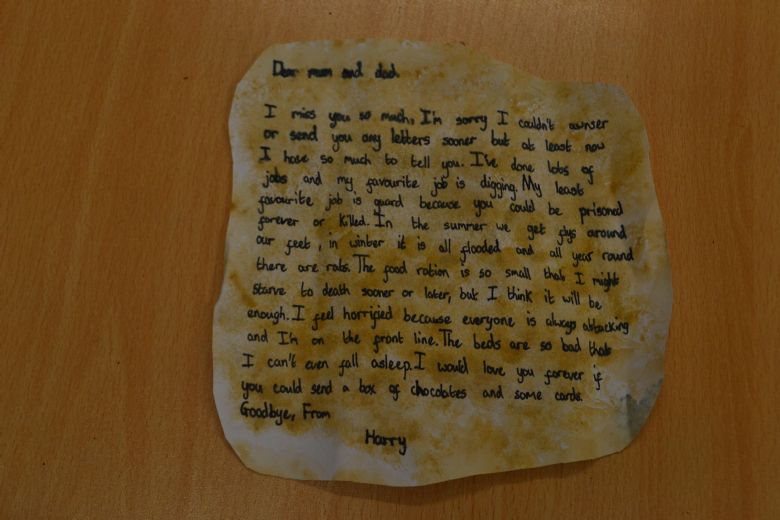 Dear mum and dad
I miss you so much, I'm sorry I couldn't awnser
or send you any letters sooner but at least now
I have so much to tell you. I've done lots of
jobs and my favourite job is digging. My least
favourite job is guard because you could be prisoned
forever or killed. In the summer we get flys around
our feet, in winter it is all flooded and all year round
there are rats. The food ration is so small that I might
starve to death sooner or later, but I think it will be
enough. I feel horrified because everyone is always attacking
and I'm on the front line. The beds are so bad that
I can't even fall asleep. I would love you forever if
you could send a box of chocolates and some cards.
Goodbye, From
Harry